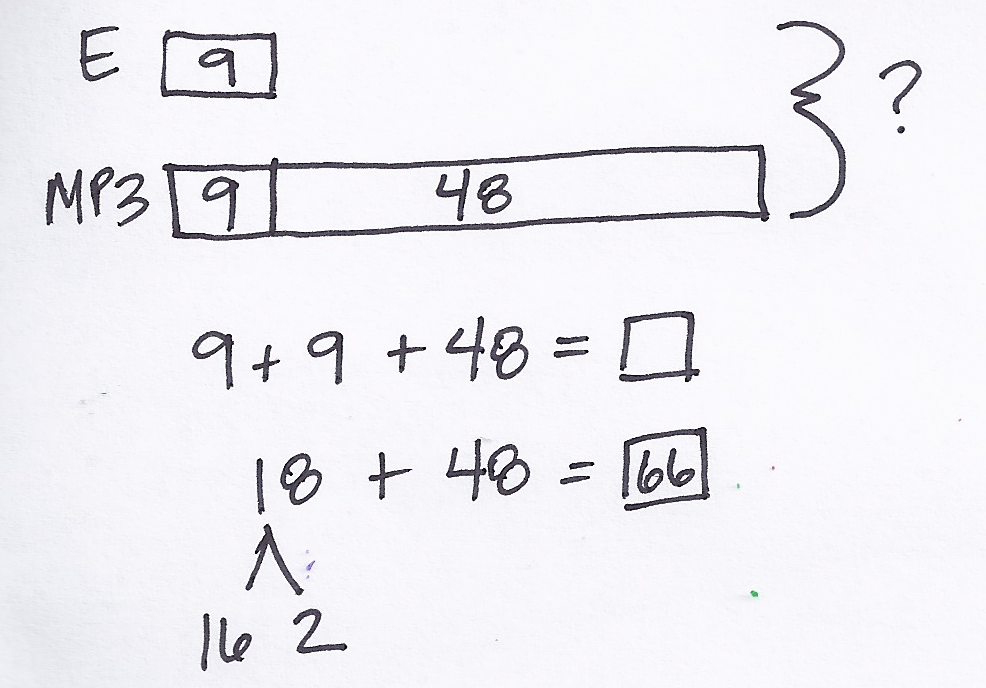 E 9
?
MP3 9 48
9 + 9 + 48 = □
18 + 48 = 66
16 2